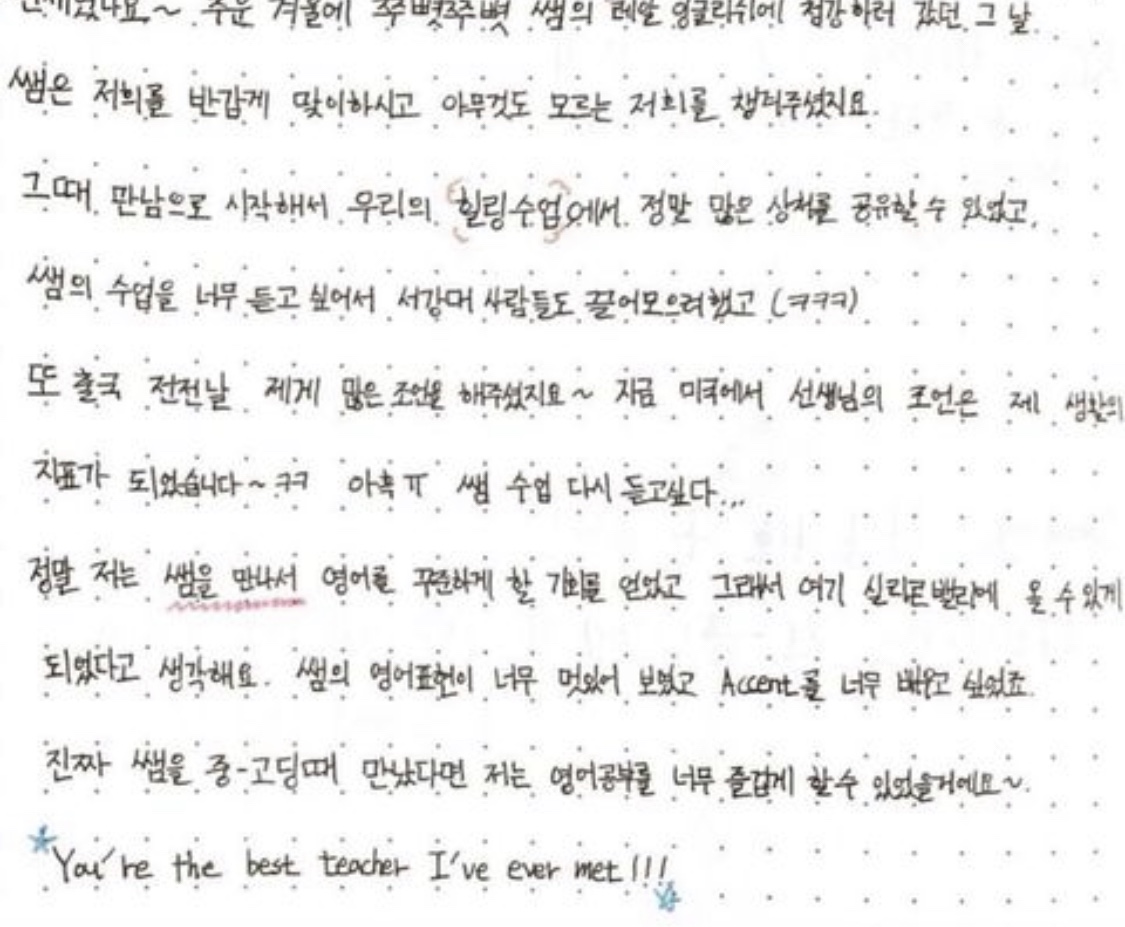 추운 겨울에 쭈뼛쭈뼛 쌤의 레알 잉글리쉬에 청강하러 갔던 그 날.
쌤은 저희를 반갑게 맞이하시고 아무것도 모르는 저희를 챙겨주셨지요.
그때 만남으로 시작해서 우리의 "힐링수업"에서 정말 많은 상처를 공유할 수 있었고,
쌤의 수업을 너무 듣고 싶어서 서강대 사람들도 끌어모으려했고 (ㅋㅋㅋ)
또 출국 전전날 제게 많은 조언을 해주셨지요~ 지금 미국에서 선생님의 조언은 제 생활의
지표가 되었습니다~ ㅋㅋ 아흑ㅠ 쌤 수업 다시 듣고싶다...
정말 저는 쌤을 만나서 영어를 꾸준하게 할 기회를 얻었고 그래서 여기 실리콘밸리에 올 수 있게
되었다고 생각해요. 쌤의 영어표현이 너무 멋있어 보였고 Accent를 너무 배우고 싶었죠.
진짜 쌤을 중-고딩때 만났다면 저는 영어공부를 너무 즐겁게 할 수 있었을거에요~
You're the best teacher I've ever met!!!